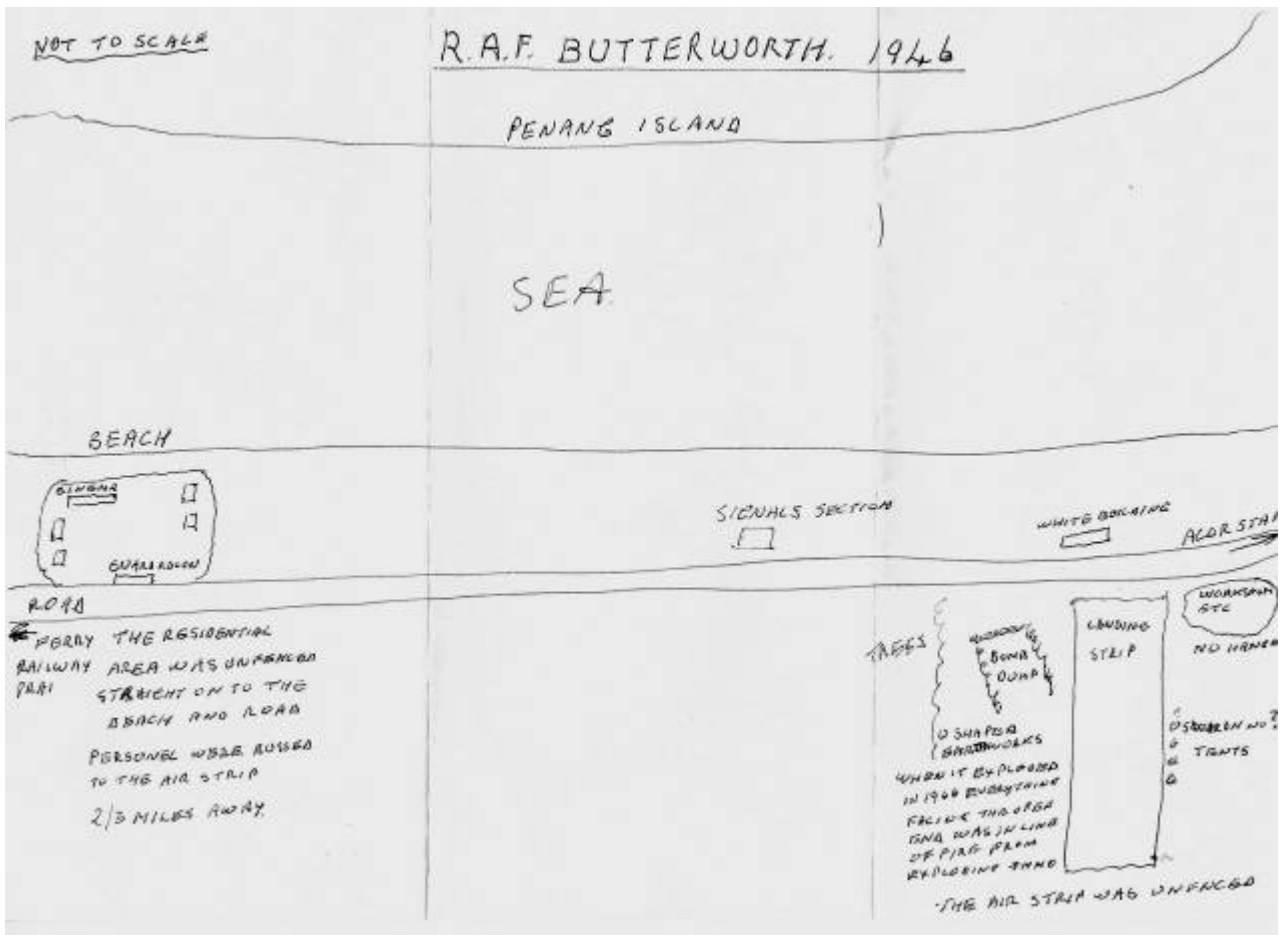 NOT TO SCALE
R.A.F. BUTTERWORTH. 1946
PENANG ISLAND
SEA.
BEACH
SIGNALS SECTION
WHITE BUILDING
ALOR STAR
GUARDROOM
ROAD
FERRY
RAILWAY
PRAI
THE RESIDENTIAL
AREA WAS UNFENCED
STRAIGHT ON TO THE
BEACH AND ROAD
PERSONEL WERE BUSSED
TO THE AIR STRIP
2/3 MILES AWAY.
TREES
BOMB
DUMP
U SHAPED
EARTHWORKS
WHEN IT EXPLODED
IN 1946 EVERYTHING
FACING THE OPEN
END WAS IN LINE
OF FIRE FROM
EXPLODING AMMO
LANDING
STRIP
WORKSHOP
ETC
NO HANGA
TENTS
THE AIR STRIP WAS UNFENCED